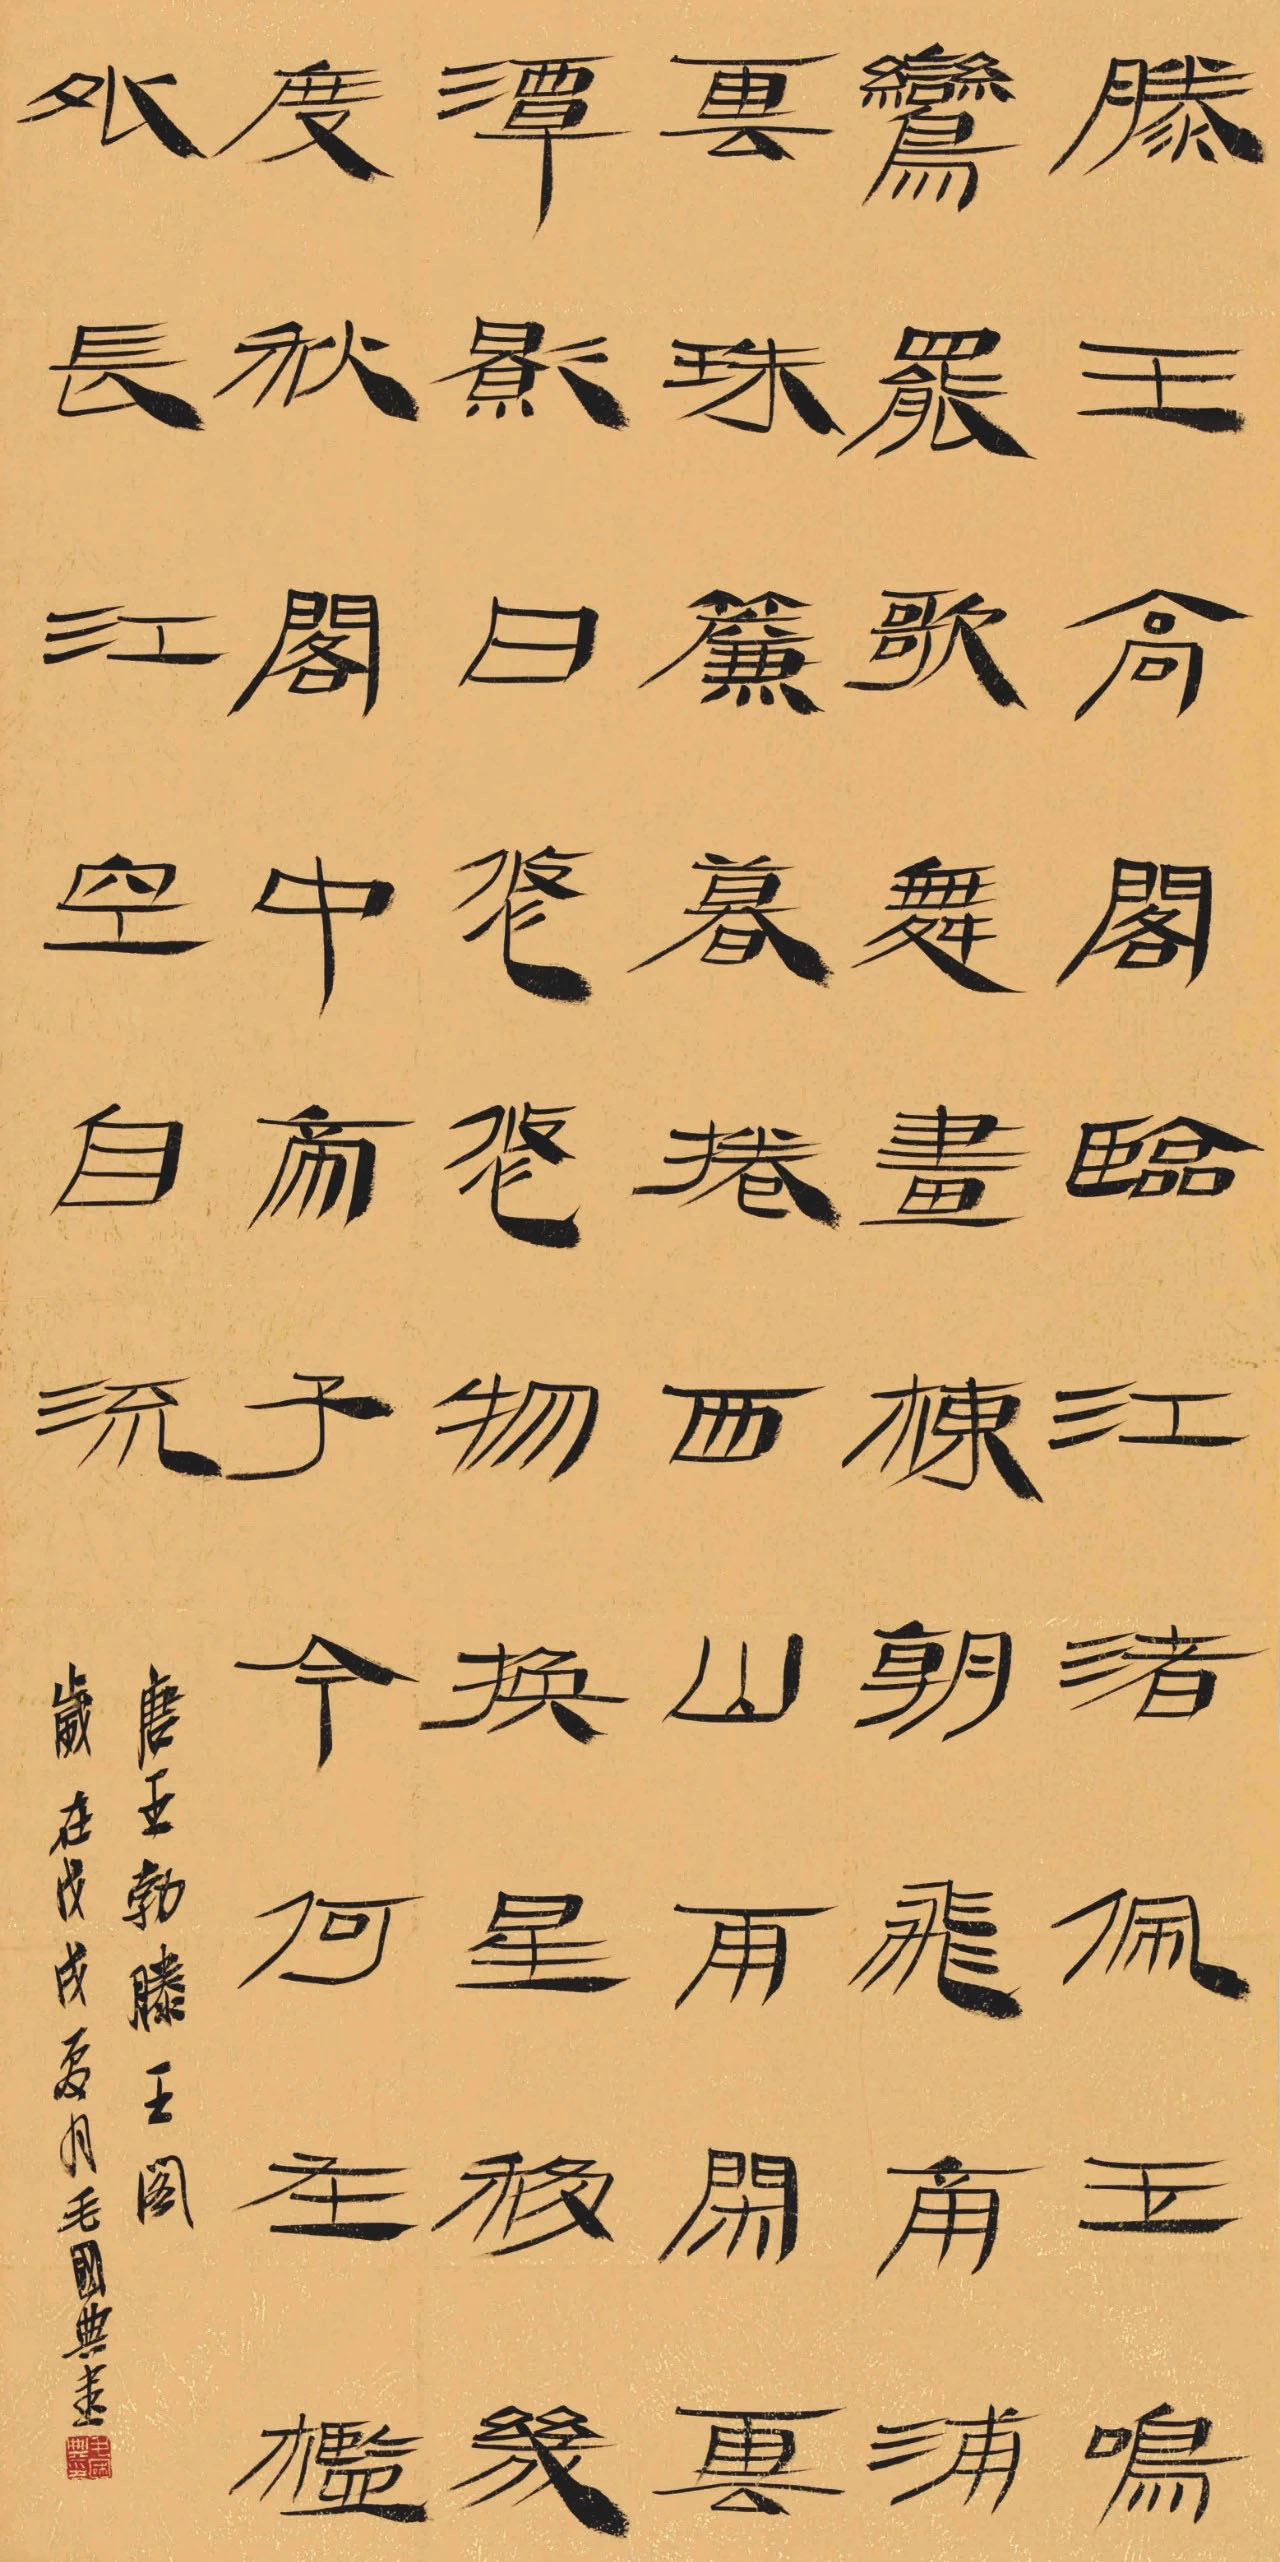 滕王高閣臨江渚佩玉鳴
鸞罷歌舞畫棟朝飛南浦
雲珠簾暮捲西山雨閑雲
潭影日悠悠物換星移幾
度秋閣中帝子今何在檻
外長江空自流
唐王勃滕王阁
歲在戊戌夏月毛國典書